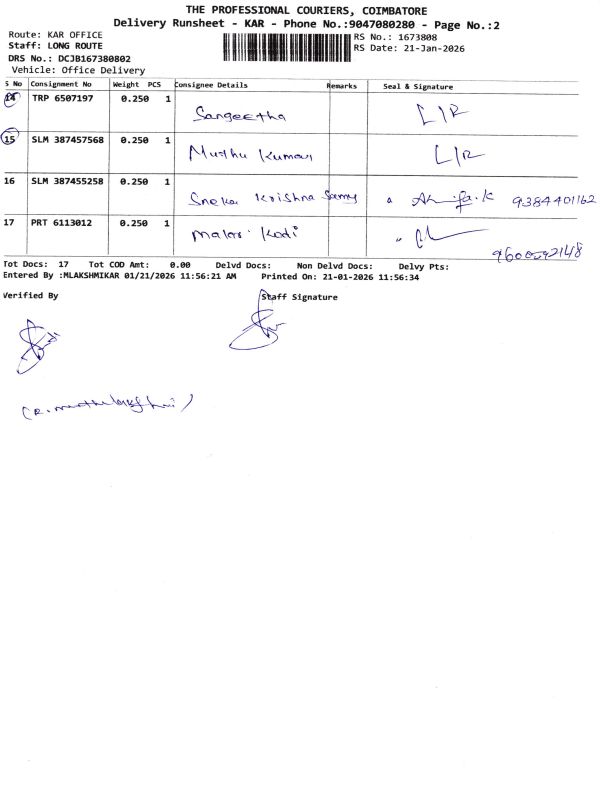 THE PROFESSIONAL COURIERS, COIMBATORE
Delivery Runsheet - KAR - Phone No.:9047080280 - Page No.:2
Route: KAR OFFICE
Staff: LONG ROUTE
DRS No.: DCJB167380802
Vehicle: Office Delivery
RS No.: 1673808
RS Date: 21-Jan-2026
S No Consignment No Weight PCS Consignee Details Remarks Seal & Signature
14 TRP 6507197 0.250 1 Sangeetha L/R
15 SLM 387457568 0.250 1 Muthu Kumar L/R
16 SLM 387455258 0.250 1 Sneka Krishna Samy 9384401162
17 PRT 6113012 0.250 1 Malar Kodi
Tot Docs: 17 Tot COD Amt: 0.00 Delvd Docs: Non Delvd Docs: Delvy Pts:
Entered By :MLAKSHMIKAR 01/21/2026 11:56:21 AM Printed On: 21-01-2026 11:56:34
Verified By Staff Signature